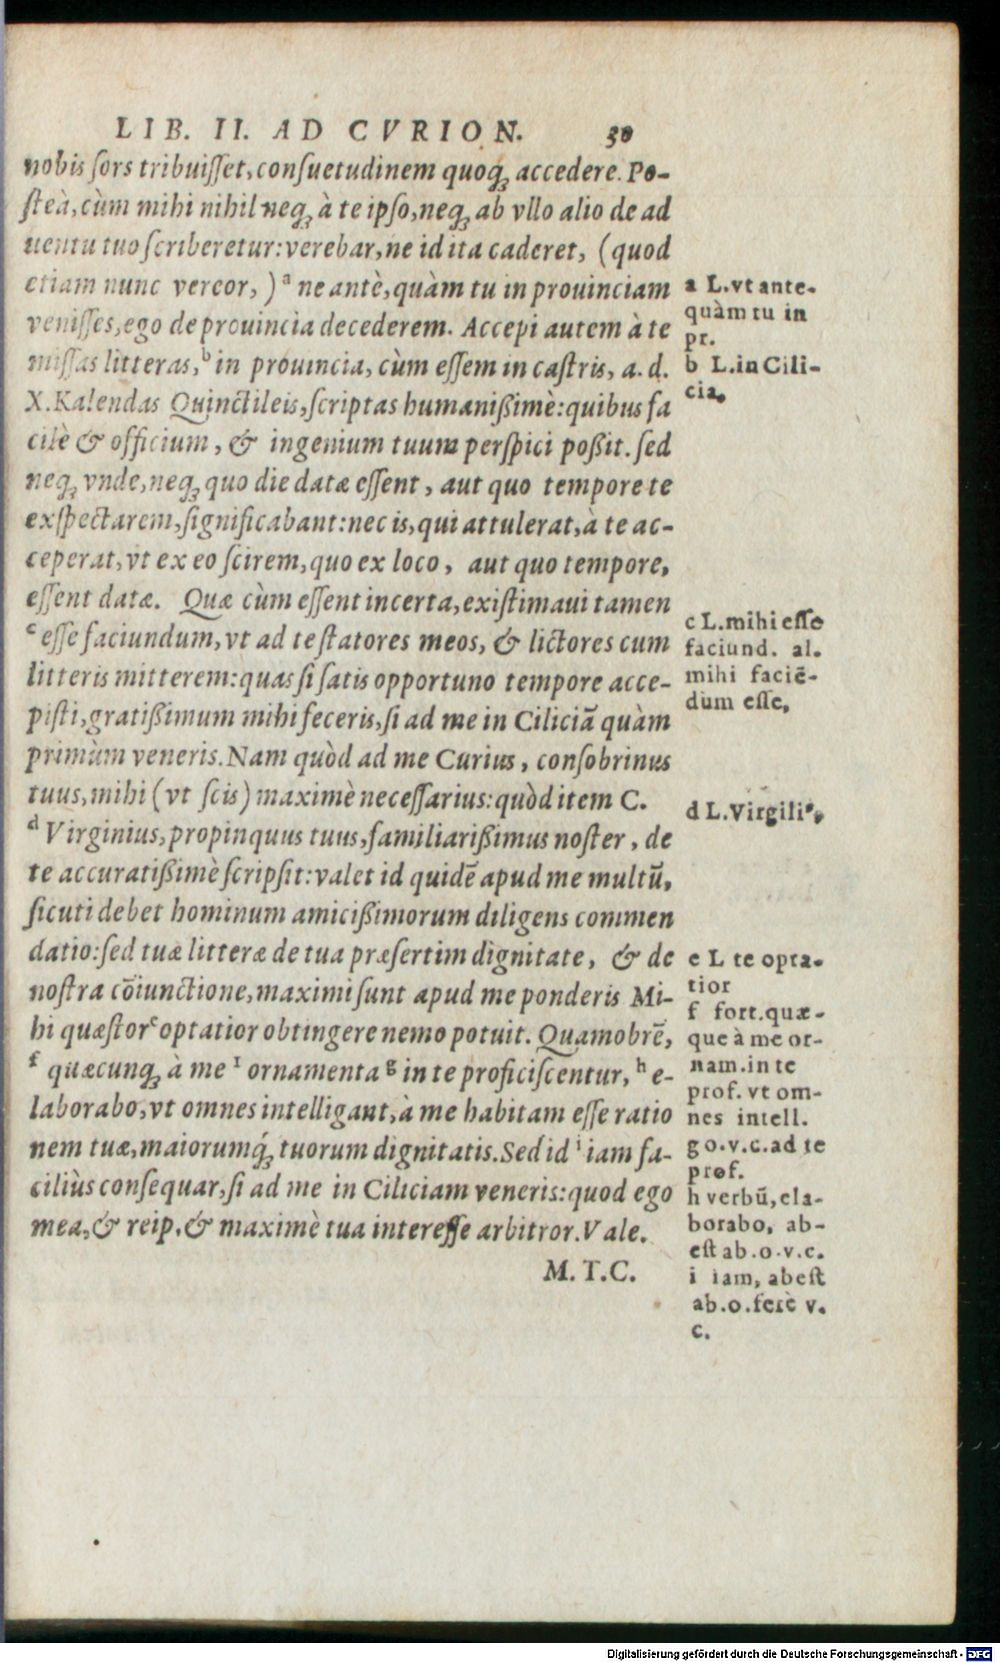 LIB. II. AD CVRION. 30
nobis ſors tribuiſſet, conſuetudinem quoq̨ accedere. Po-
ſteà, cùm mihi nihil neq̨ à te ipſo, neq̨ ab vllo alio de ad
uentu tuo ſcriberetur: verebar, ne id ita caderet, (quod
etiam nunc vereor,) ª ne antè, quàm tu in prouinciam
veniſſes, ego de prouincia decederem. Accepi autem à te
miſſas litteras, ᵇ in prouincia, cùm eſſem in caſtris, a. d.
X. Kalendas Quinctileis, ſcriptas humanißimè: quibus fa
cilè & officium, & ingenium tuum perſpici poßit. ſed
neq̨ vnde, neq̨ quo die datæ eſſent, aut quo tempore te
exſpectarem, ſignificabant: nec is, qui attulerat, à te ac-
ceperat, vt ex eo ſcirem, quo ex loco, aut quo tempore,
eſſent datæ. Quæ cùm eſſent incerta, exiſtimaui tamen
ᶜ eſſe faciundum, vt ad te ſtatores meos, & lictores cum
litteris mitterem: quas ſi ſatis opportuno tempore acce-
piſti, gratißimum mihi feceris, ſi ad me in Ciliciã quàm
primùm veneris. Nam quòd ad me Curius, conſobrinus
tuus, mihi (vt ſcis) maximè neceſſarius: quòd item C.
ᵈ Virginius, propinquus tuus, familiarißimus noſter, de
te accuratißimè ſcripſit: valet id quidẽ apud me multũ,
ſicuti debet hominum amicißimorum diligens commen
datio: ſed tuæ litteræ de tua præſertim dignitate, & de
noſtra cõiunctione, maximi ſunt apud me ponderis Mi-
hi quæſtor ᵉ optatior obtingere nemo potuit. Quamobrẽ,
ᶠ quæcunq̨ à me ¹ ornamenta ᵍ in te proficiſcentur, ʰ e-
laborabo, vt omnes intelligant, à me habitam eſſe ratio
nem tuæ, maiorumq̨́ tuorum dignitatis. Sed id ⁱ iam fa-
ciliùs conſequar, ſi ad me in Ciliciam veneris: quod ego
mea, & reip. & maximè tua intereſſe arbitror. Vale.
M. T. C.
a L. vt ante-
quàm tu in
pr.
b L. in Cili-
cia,
c L. mihi eſſe
faciund. al.
mihi faciẽ-
dum eſſe,
d L. Virgiliꝰ,
e L te opta-
tior
f fort. quæ-
que à me or-
nam. in te
prof. vt om-
nes intell.
g o. v. c. ad te
prof.
h verbũ, ela-
borabo, ab-
eſt ab. o. v. c.
i iam, abeſt
ab. o. ferè v.
c.
Digitalisierung gefördert durch die Deutsche Forschungsgemeinschaft - DFG